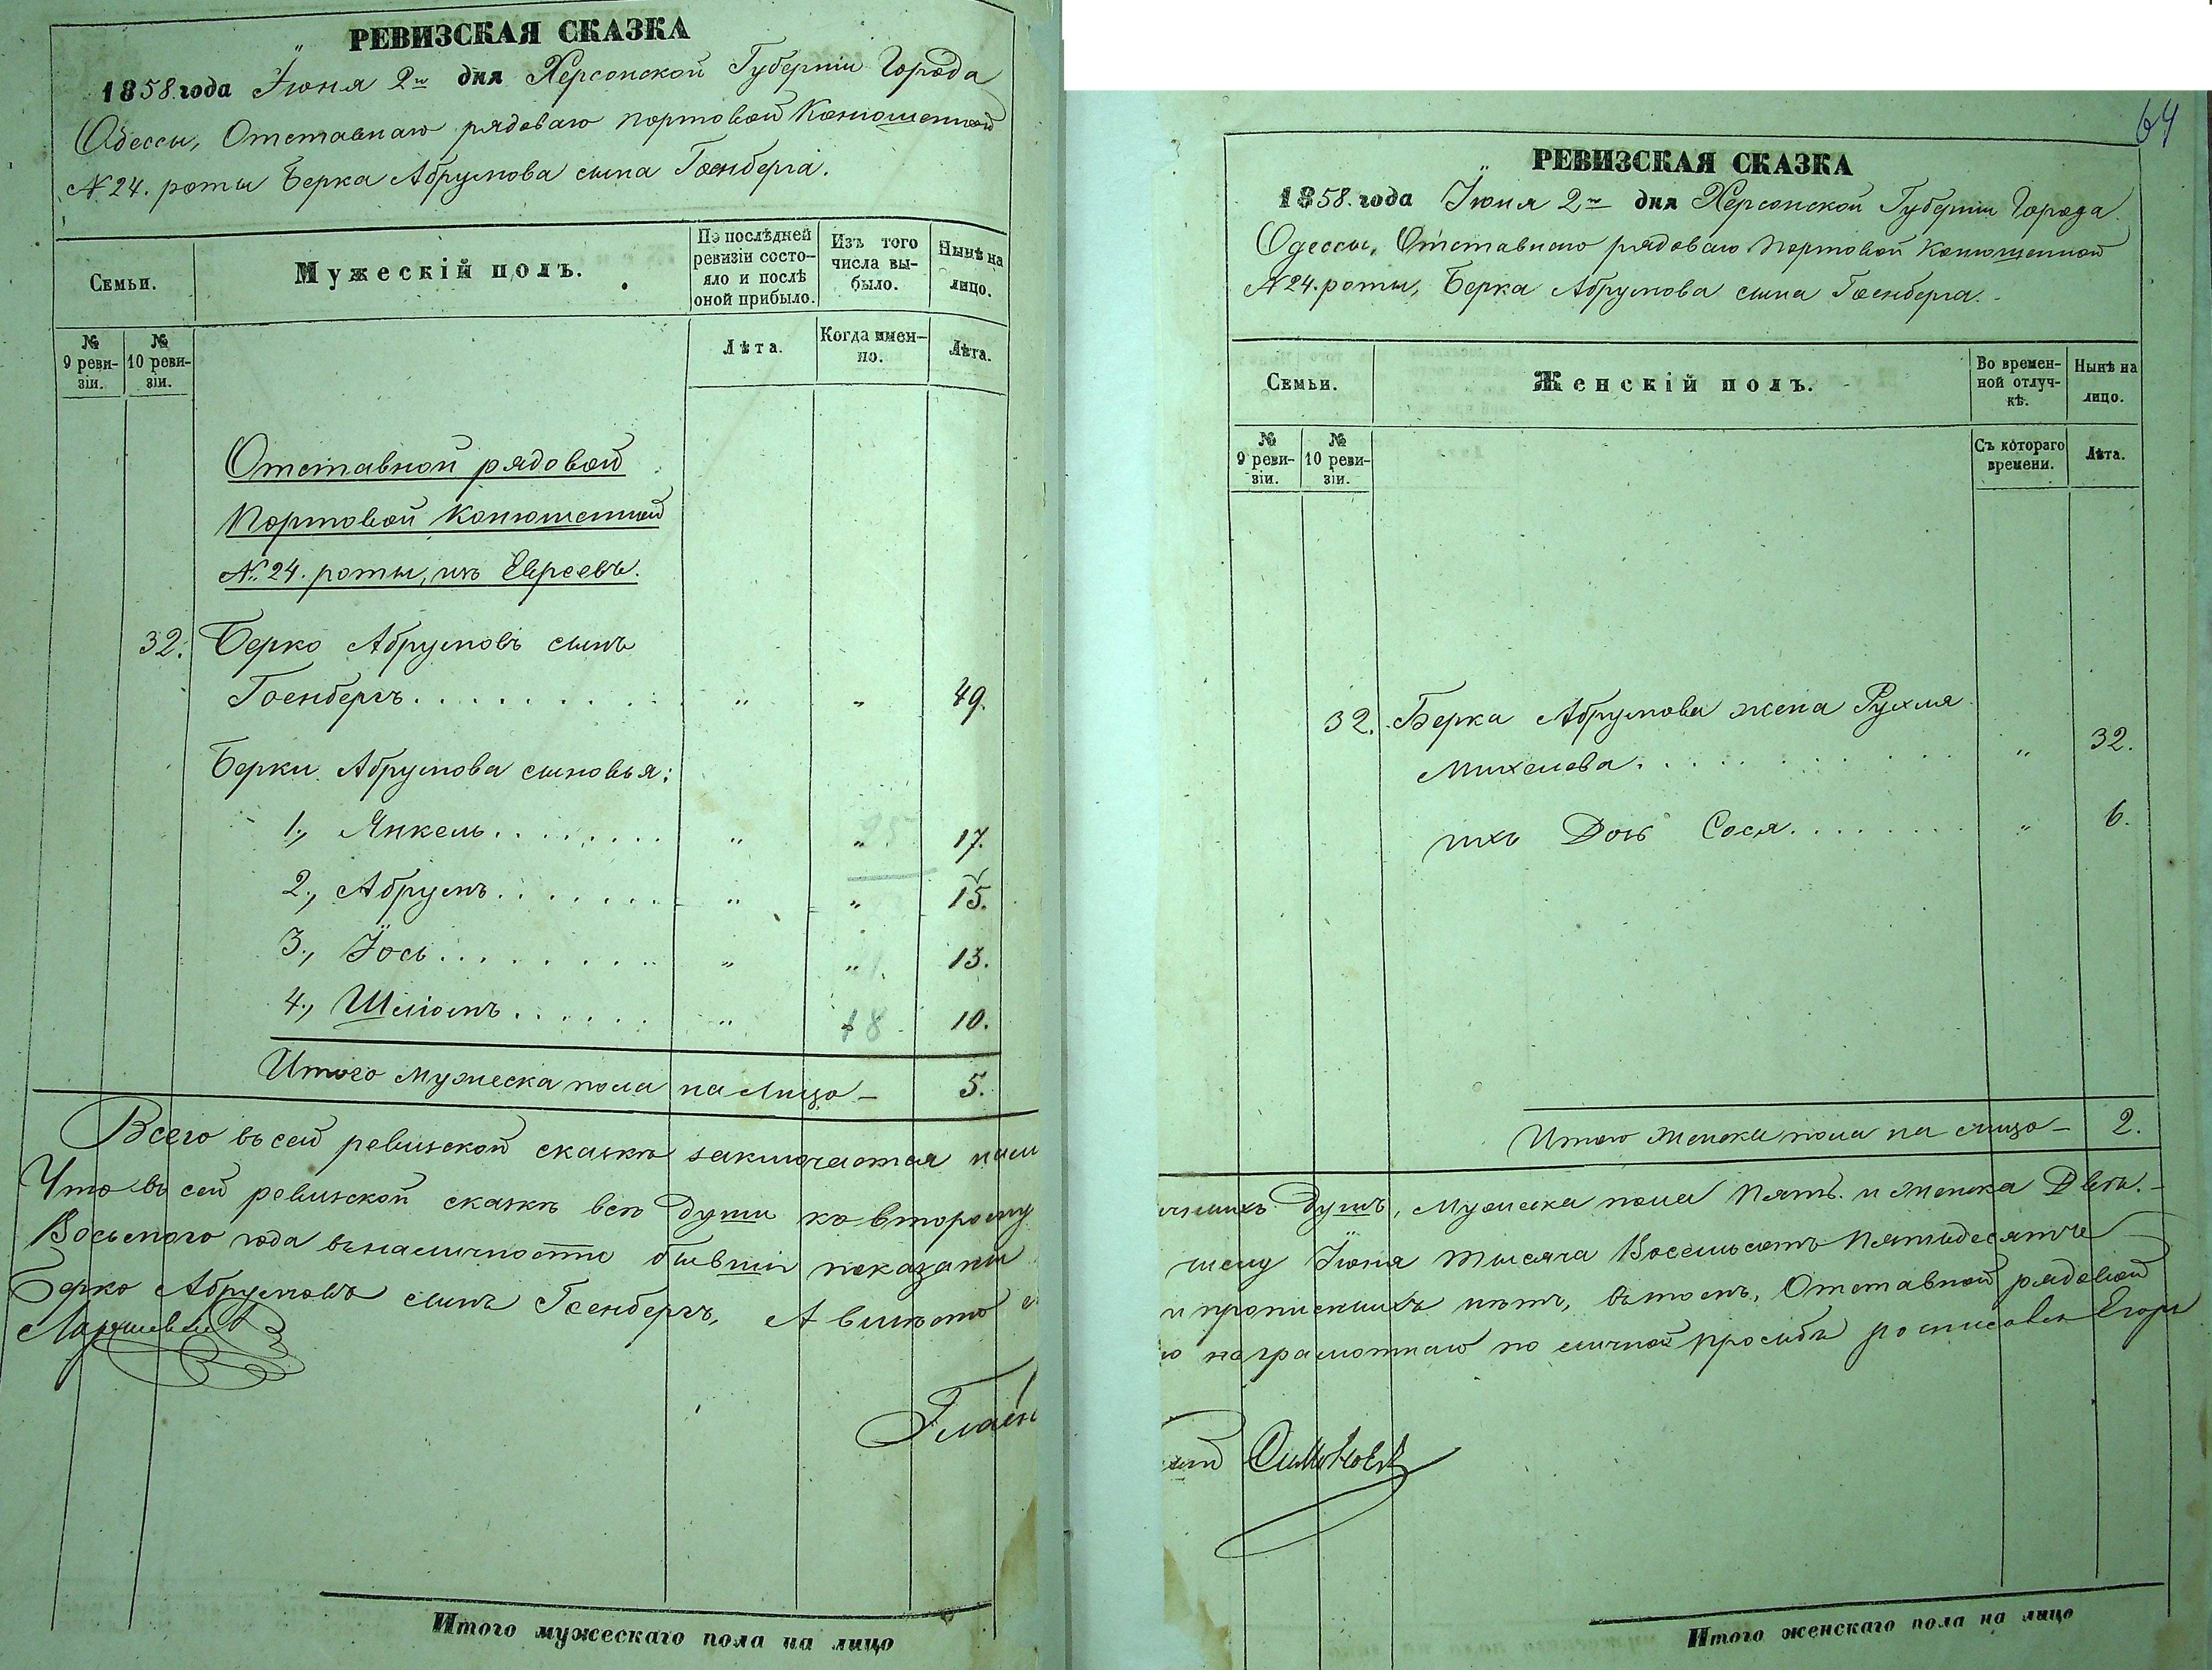 РЕВИЗСКАЯ СКАЗКА
1858. года Іюня 2го дня Херсонской Губерніи Города
Одессы, Отставнаго рядоваго портовой Конюшенной
№ 24. роты Берка Абрумова сына Гоенберга.
Семьи.
Мужескій полъ.
По послѣдней ревизіи состо-
яло и послѣ оной прибыло.
Изъ того числа вы-
было.
Нынѣ на лицо.
№ 9 реви-
зіи.
№ 10 реви-
зіи.
Лѣта.
Когда имен-
но.
Лѣта.
Отставной рядовой
Портовой Конюшенной
№ 24. роты, изъ Евреевъ.
32. Берко Абрумовъ сынъ
Гоенбергъ. . . . . . . . . . „ „ 49.
Берки Абрумова сыновья:
1., Янкель. . . . . . . . „ „ 17.
2., Абрумъ. . . . . . . „ „ 15.
3., Іось. . . . . . . . . „ „ 13.
4., Шліомъ. . . . . . „ 18 10.
Итого мужеска пола на лицо — 5.
Всего въ сей ревизской сказкѣ заключается
Что въ сей ревизской сказкѣ всѣ души ко второму
Восьмого года въ наличности бывшіи показаны
Берко Абрумовъ сынъ Гоенбергъ, А вмѣсто
Итого мужескаго пола на лицо
64
РЕВИЗСКАЯ СКАЗКА
1858. года Іюня 2го дня Херсонской Губерніи Города
Одессы, Отставнаго рядоваго Портовой Конюшенной
№ 24. роты, Берка Абрумова сына Гоенберга.
Семьи.
Женскій полъ.
Во времен-
ной отлуч-
кѣ.
Нынѣ на лицо.
№ 9 реви-
зіи.
№ 10 реви-
зіи.
Съ котораго времени.
Лѣта.
32. Берка Абрумова жена Рухля
Михелева. . . . . . . . . . . „ 32.
ихъ Дочь Сося. . . . . . . . „ 6.
Итого женска пола на лицо — 2.
душъ, Мужеска пола Пять. и женска Двѣ. —
Іюня тысяча Восемьсотъ Пятьдесятъ
и прописныхъ нѣтъ, въ томъ, Отставной рядовой
неграмотнаго по личной просьбѣ росписался Егоръ
Итого женскаго пола на лицо